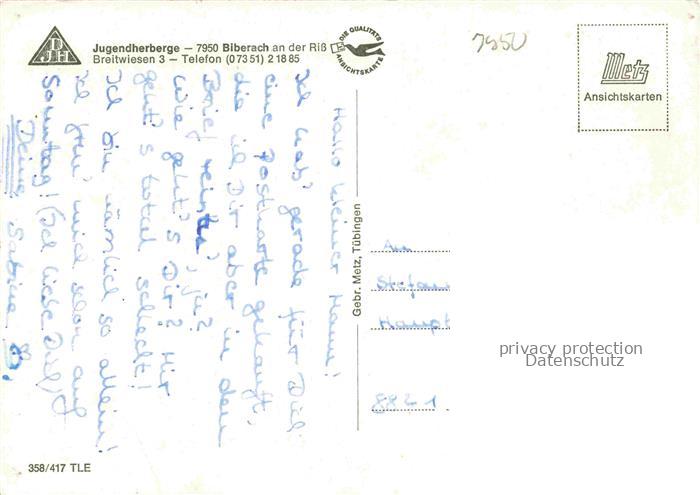 Jugendherberge – 7950 Biberach an der Riß
Breitwiesen 3 – Telefon (07351) 21885
DJH
DIE QUALITÄTS
ANSICHTSKARTE
7950
Metz
Ansichtskarten
Hallo kleiner Mann!
Ich hab' gerade für Dich
eine Postkarte gekauft,
die ich Dir aber in den
Brief
Wie geht's Dir? Mir
geht's total schlecht!
Ich bin nämlich so allein!
Ich freu' mich schon auf
Sonntag! (Ich liebe Dich)
Deine Sabine
Gebr. Metz, Tübingen
An
Stefan
Haupt
8821
privacy protection
Datenschutz
358/417 TLE